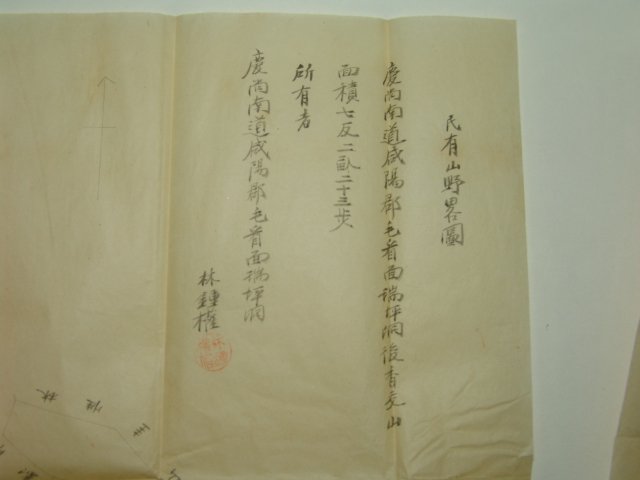 民有山野畧圖
慶尙南道咸陽郡毛看面瑞坪洞後青交山
面積七反二畝二十三步
所有者
慶尙南道咸陽郡毛看面瑞坪洞
林鍾權